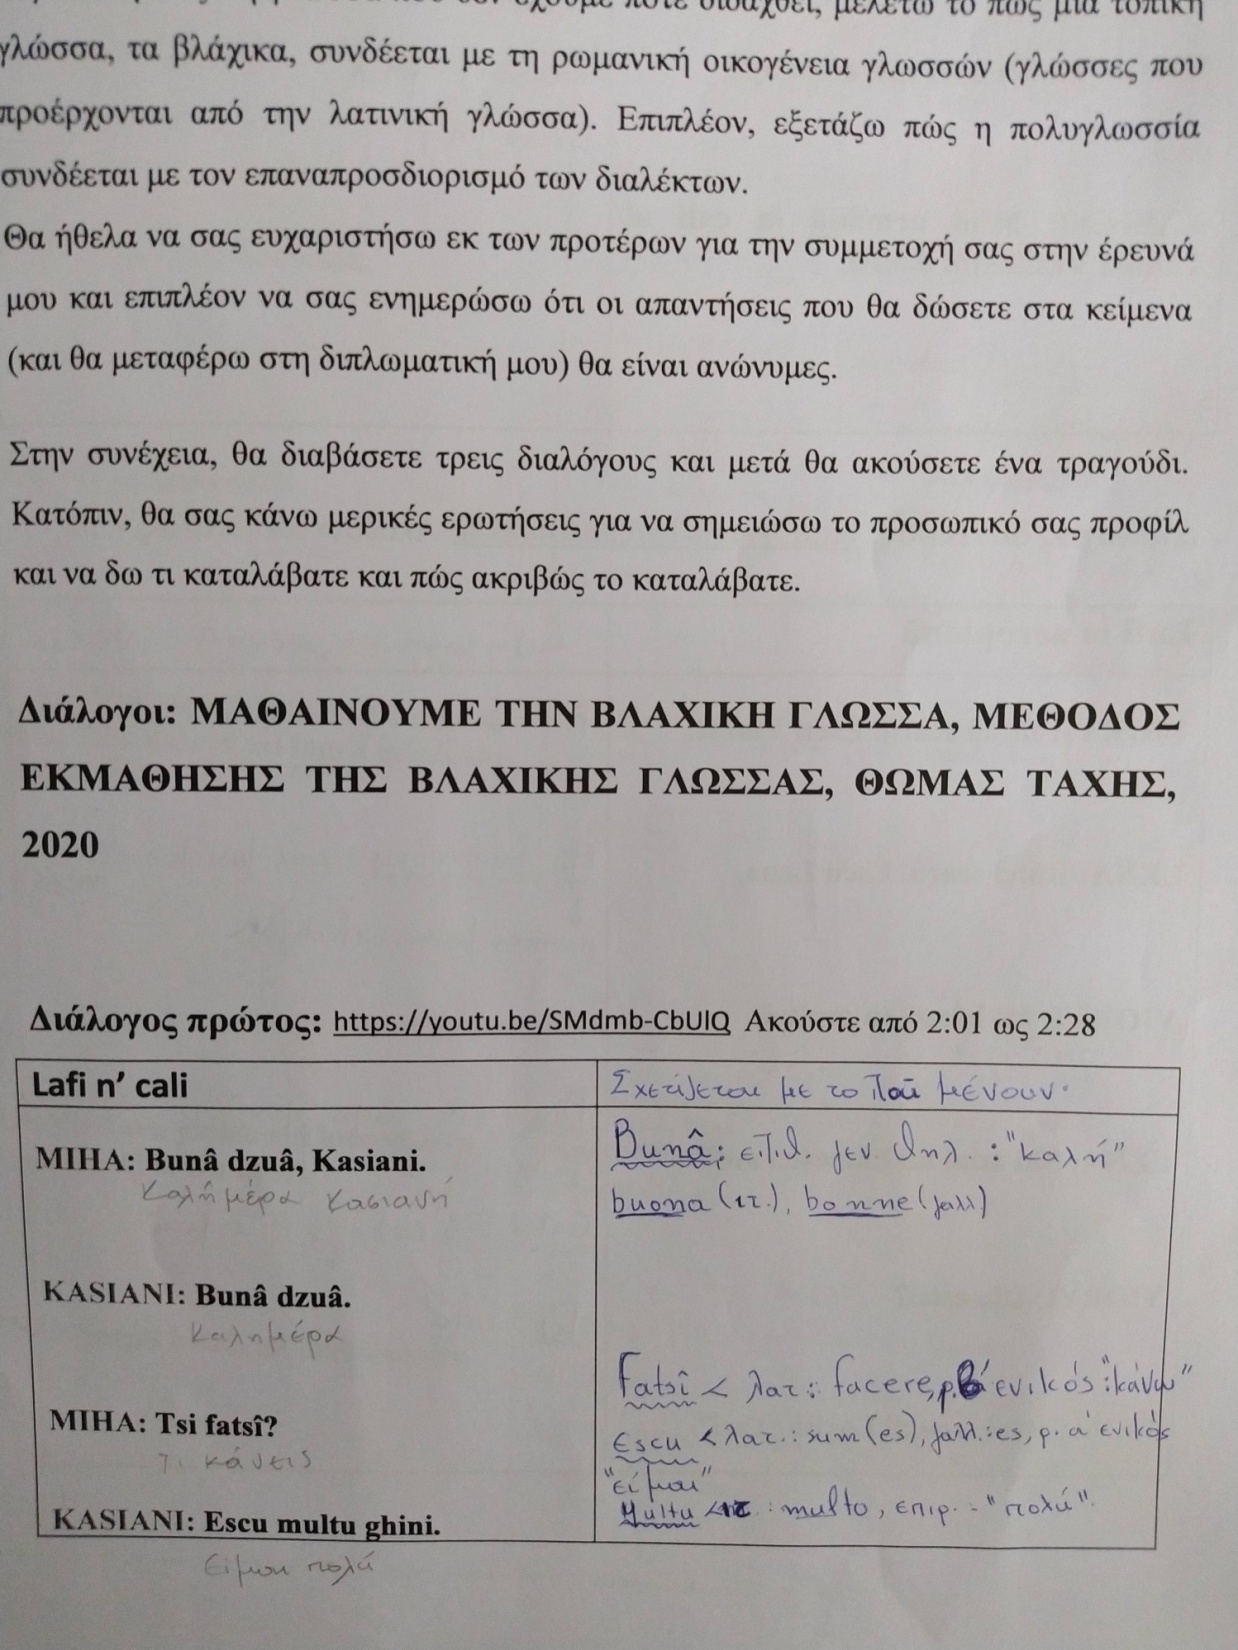 έχουμε ποτέ διδαχθεί, μελετώ το πώς μια τοπική
γλώσσα, τα βλάχικα, συνδέεται με τη ρωμανική οικογένεια γλωσσών (γλώσσες που
προέρχονται από την λατινική γλώσσα). Επιπλέον, εξετάζω πώς η πολυγλωσσία
συνδέεται με τον επαναπροσδιορισμό των διαλέκτων.
Θα ήθελα να σας ευχαριστήσω εκ των προτέρων για την συμμετοχή σας στην έρευνά
μου και επιπλέον να σας ενημερώσω ότι οι απαντήσεις που θα δώσετε στα κείμενα
(και θα μεταφέρω στη διπλωματική μου) θα είναι ανώνυμες.
Στην συνέχεια, θα διαβάσετε τρεις διαλόγους και μετά θα ακούσετε ένα τραγούδι.
Κατόπιν, θα σας κάνω μερικές ερωτήσεις για να σημειώσω το προσωπικό σας προφίλ
και να δω τι καταλάβατε και πώς ακριβώς το καταλάβατε.
Διάλογοι: ΜΑΘΑΙΝΟΥΜΕ ΤΗΝ ΒΛΑΧΙΚΗ ΓΛΩΣΣΑ, ΜΕΘΟΔΟΣ
ΕΚΜΑΘΗΣΗΣ ΤΗΣ ΒΛΑΧΙΚΗΣ ΓΛΩΣΣΑΣ, ΘΩΜΑΣ ΤΑΧΗΣ,
2020
Διάλογος πρώτος: https://youtu.be/SMdmb-CbUlQ Ακούστε από 2:01 ως 2:28
Lafi n' cali
Σχετίζεται με το Που μένουν.
MIHA: Bunâ dzuâ, Kasiani.
Καλημέρα Κασιανή
Bunâ: επιθ. γεν. θηλ. : "καλή"
buona (ιτ.), bonne (γαλλ)
KASIANI: Bunâ dzuâ.
Καλημέρα
MIHA: Tsi fatsî?
Τι κάνεις
Fatsî < λατ.: facere, ρ. β' ενικός: "κάνω"
Escu < λατ.: sum (es), γαλλ.: es, ρ. α' ενικός
"είμαι"
KASIANI: Escu multu ghini.
Είμαι πολύ
Multu < ιτ. : multo, επιρ. : "πολύ".